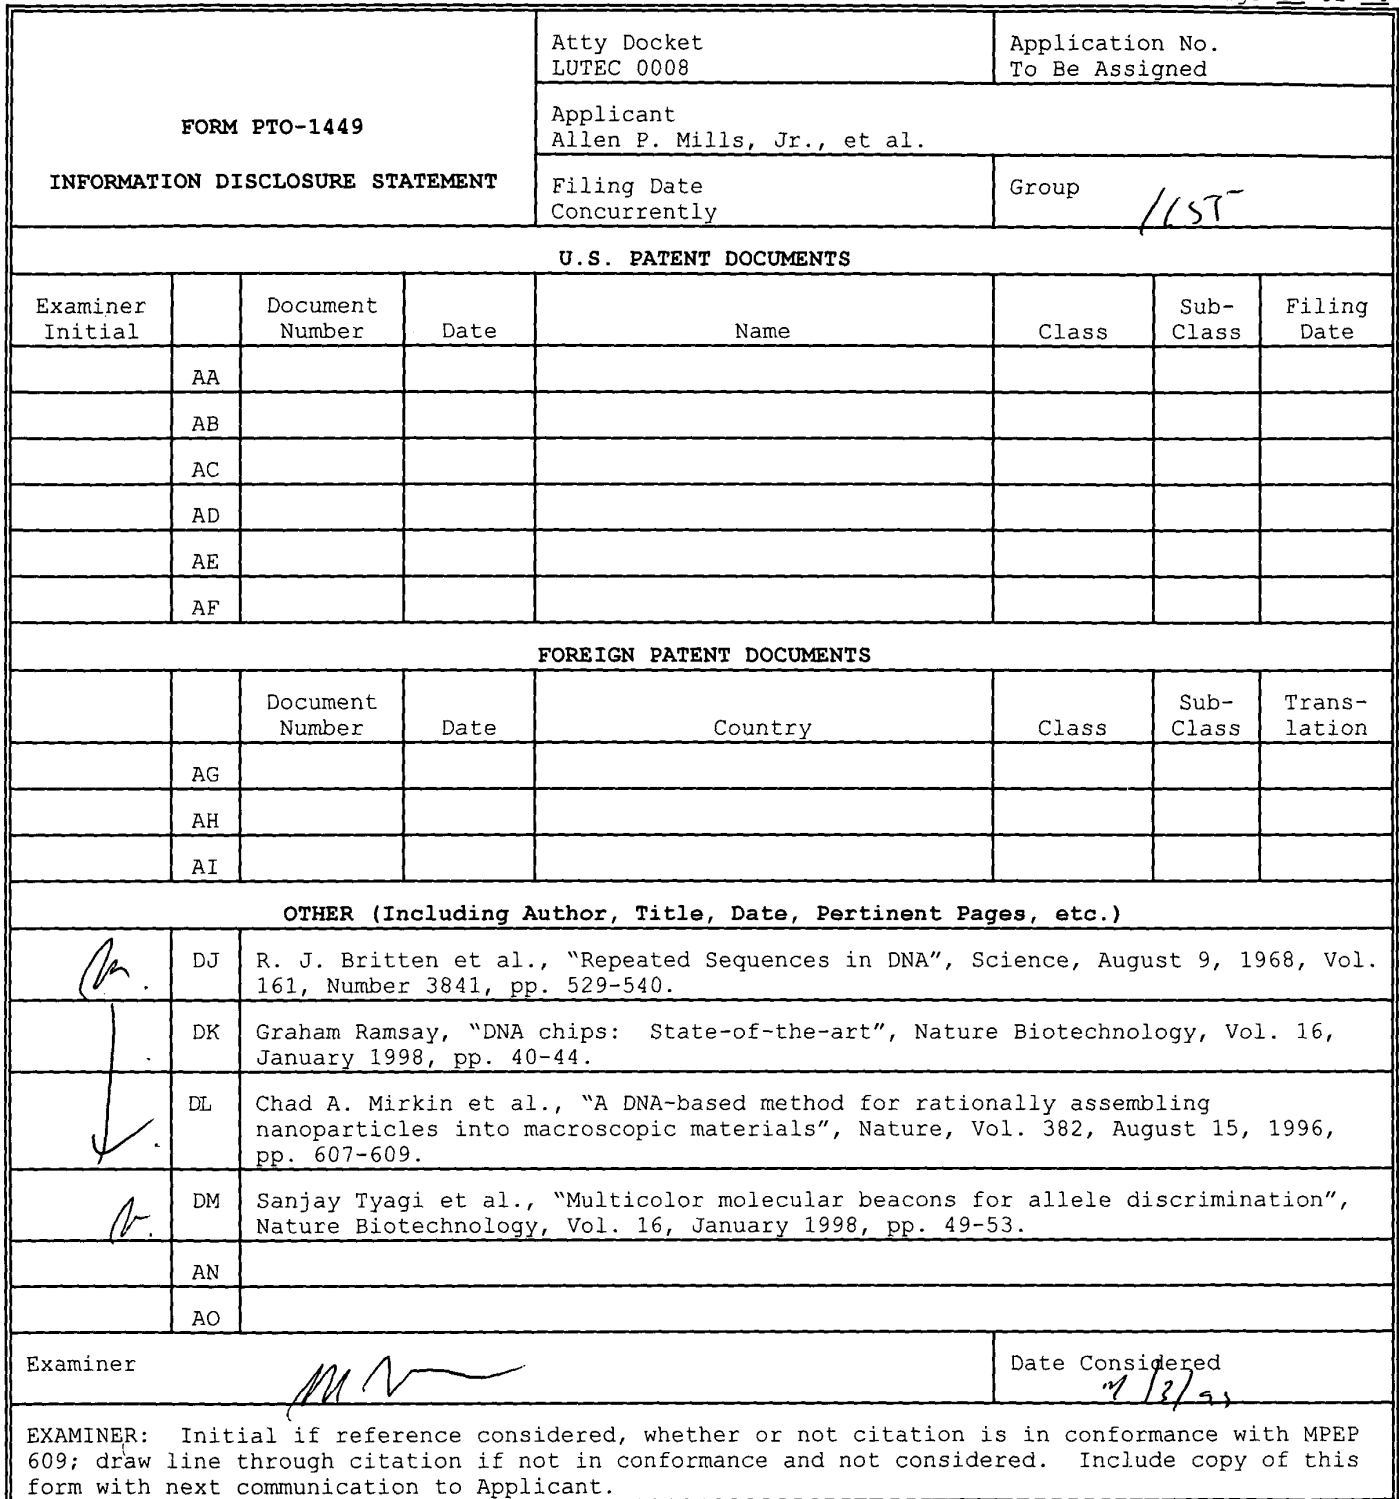 Atty Docket
LUTEC 0008
Application No.
To Be Assigned
FORM PTO-1449
INFORMATION DISCLOSURE STATEMENT
Applicant
Allen P. Mills, Jr., et al.
Filing Date
Concurrently
Group
U.S. PATENT DOCUMENTS
Examiner Initial
Document Number
Date
Name
Class
Sub-Class
Filing Date
AA
AB
AC
AD
AE
AF
FOREIGN PATENT DOCUMENTS
Document Number
Date
Country
Class
Sub-Class
Trans-lation
AG
AH
AI
OTHER (Including Author, Title, Date, Pertinent Pages, etc.)
DJ R. J. Britten et al., “Repeated Sequences in DNA”, Science, August 9, 1968, Vol.
161, Number 3841, pp. 529-540.
DK Graham Ramsay, “DNA chips: State-of-the-art”, Nature Biotechnology, Vol. 16,
January 1998, pp. 40-44.
DL Chad A. Mirkin et al., “A DNA-based method for rationally assembling
nanoparticles into macroscopic materials”, Nature, Vol. 382, August 15, 1996,
pp. 607-609.
DM Sanjay Tyagi et al., “Multicolor molecular beacons for allele discrimination”,
Nature Biotechnology, Vol. 16, January 1998, pp. 49-53.
AN
AO
Examiner
Date Considered
EXAMINER: Initial if reference considered, whether or not citation is in conformance with MPEP
609; draw line through citation if not in conformance and not considered. Include copy of this
form with next communication to Applicant.